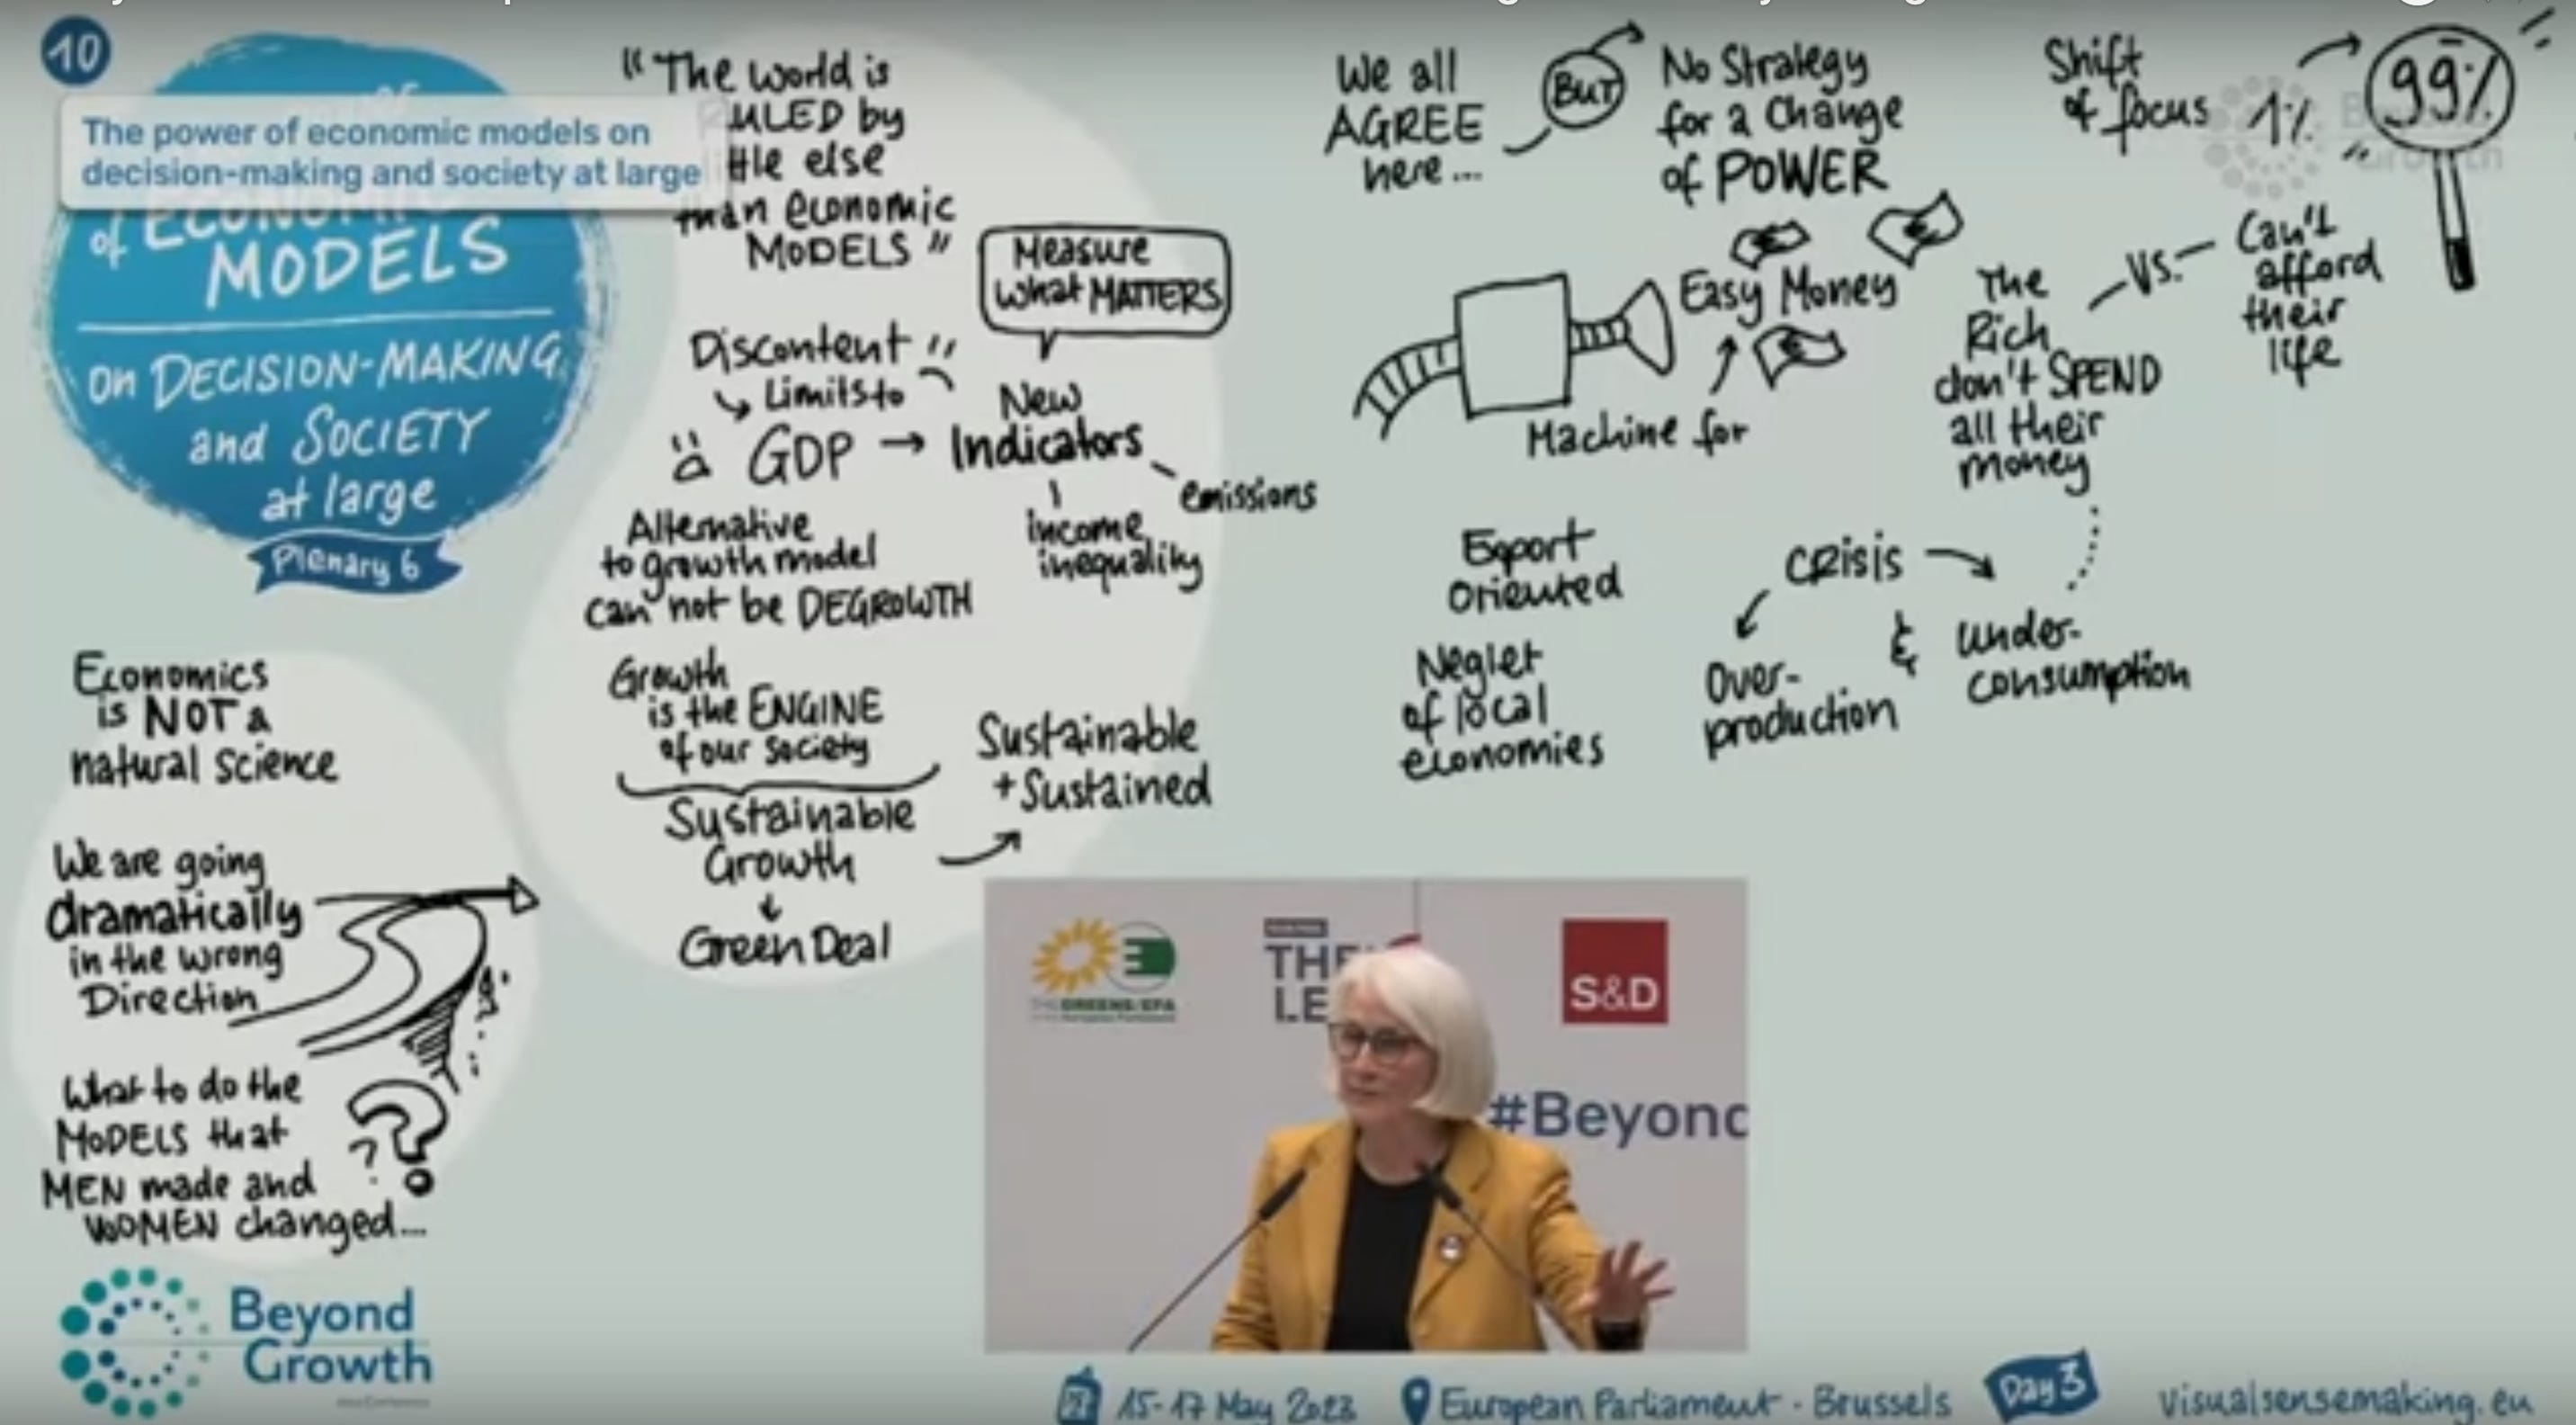 10
The power of economic models on
decision-making and society at large
of ECONOMIC
MODELS
on DECISION-MAKING
and SOCIETY
at large
Plenary 6
Economics
is NOT a
natural science
We are going
dramatically
in the wrong
Direction
What to do the
MODELS that
MEN made and
WOMEN changed...
??
Beyond
Growth
"The world is
RULED by
else
than economic
MODELS"
Measure
what MATTERS
Discontent
Limits to
GDP → New
Indicators
emissions
income
inequality
Alternative
to growth model
can not be DEGROWTH
Growth
is the ENGINE
of our society
Sustainable
Growth
Green Deal
Sustainable
+ Sustained
We all
AGREE
here...
BUT
No Strategy
for a Change
of POWER
Easy Money
Machine for
Export
Oriented
Neglet
of local
economies
Crisis
Over-
production
&
under-
consumption
Shift
of focus
1%
99%
The
Rich
don't SPEND
all their
money
VS.
Can't
afford
their
life
THE GREENS/EFA
THE
LE
S&D
#Beyond
15-17 May 2023
European Parliament · Brussels
Day 3
visualsensemaking.eu